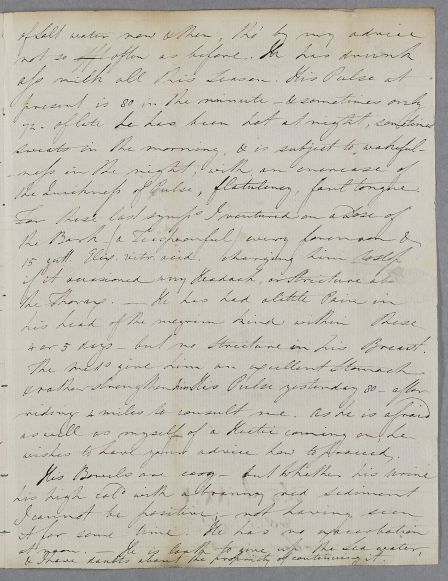 of Salt water now & then, tho' by my advice
not so often as before. He has drunk
ass milk all this Season. His Pulse at
present is 80 in the minute - & sometimes only
72. of late he has been hot at night, sometimes
sweats in the morning, & is subject to wakeful-
-ness in the night, with an increase of
the Quickness of Pulse, flatulency, foul tongue
For these last symps I ventured on a Dose of
the Bark (a Teaspoonful) every forenoon &
15 gutt. Elix. vitr. acid. charging him to stop
if it occasioned any Headach, or Stricture abt
the Thorax. — He has had a little Pain in
his head of the megrim kind within these
4 or 5 days - but no Stricture in his Breast.
The meds give him an excellent Stomach
& rather strengthen him His Pulse yesterday 80 - after
riding 4 miles to consult me. as he is afraid
as well as myself of a Hectic coming on he
wishes to have your advice how to proceed.
His Bowels are easy - but whether his urine
his high cold with a branny red sediment
I cannot be positive, not having seen
it for some time. He has no exacerbation
at noon. — He is loath to give up the Sea water,
& I have doubts about the propriety of continuing it.